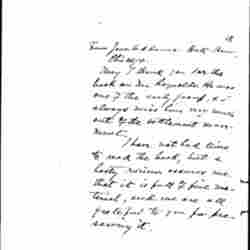 Chicago.
May I thank you for the
book on Mr Reynolds. He was
one of the early group, &
always miss him very much
out of the settlement move-
ment.
I have not had time
to read the book, but a
hasty review assures me
that it is full of fine ma-
terial, and we are all
grateful to you for pre-
serving it.